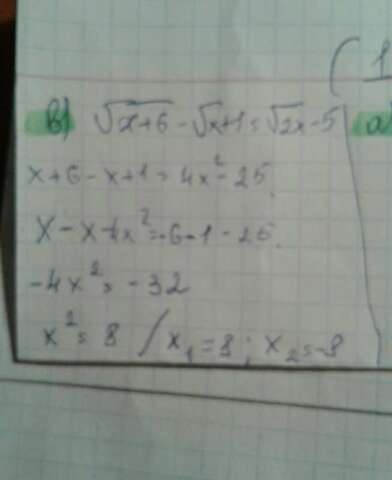 (1
в) √x+6 - √x+1 = √2x-5
a
x+6-x+1=4x²-25.
x-x-4x²=-6-1-25.
-4x²=-32
x²=8 / x₁=8; x₂=-8